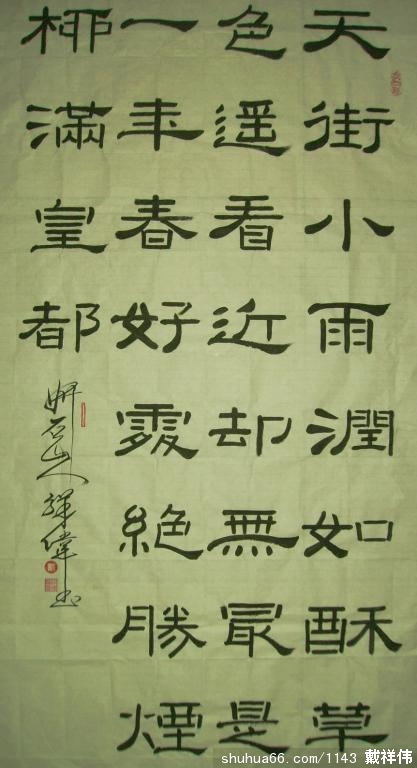 天街小雨潤如酥草
色遥看近却無最是
一年春好處絕勝煙
柳滿皇都
石山人祥偉书
shuhua66.com/1143 戴祥伟